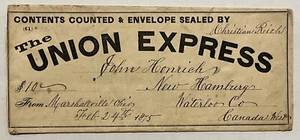 CONTENTS COUNTED & ENVELOPE SEALED BY
Christian
The
UNION EXPRESS
John Honrich
$10
New Hamburg
From Marshallville Ohio
Waterloo Co
Feb 24th 1875
Canada West